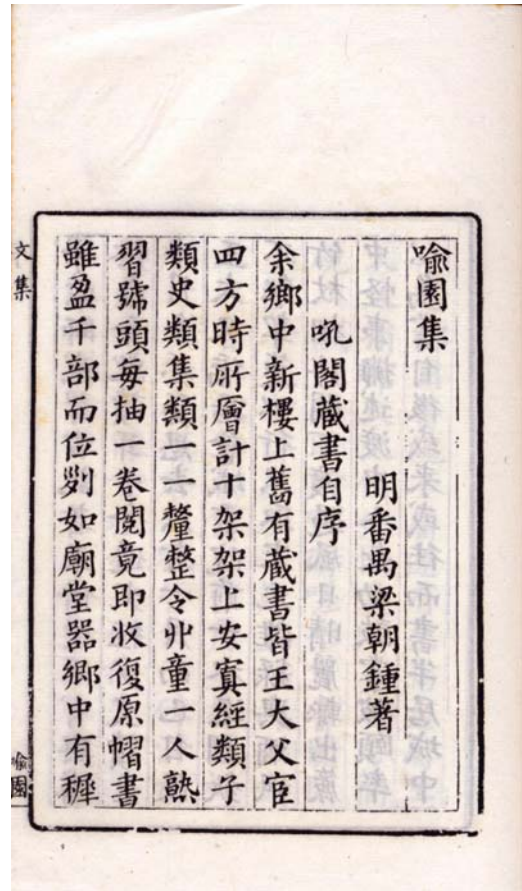 喻園集
明番禺梁朝鍾著
吼閣藏書自序
余鄉中新樓上舊有藏書皆王大父宦
四方時所層計十架架上安寘經類子
類史類集類一一釐整令丱童一人熟
習號頭每抽一卷閱竟即收復原㡇書
雖盈千部而位列如廟堂器鄉中有穉
文集
喻園